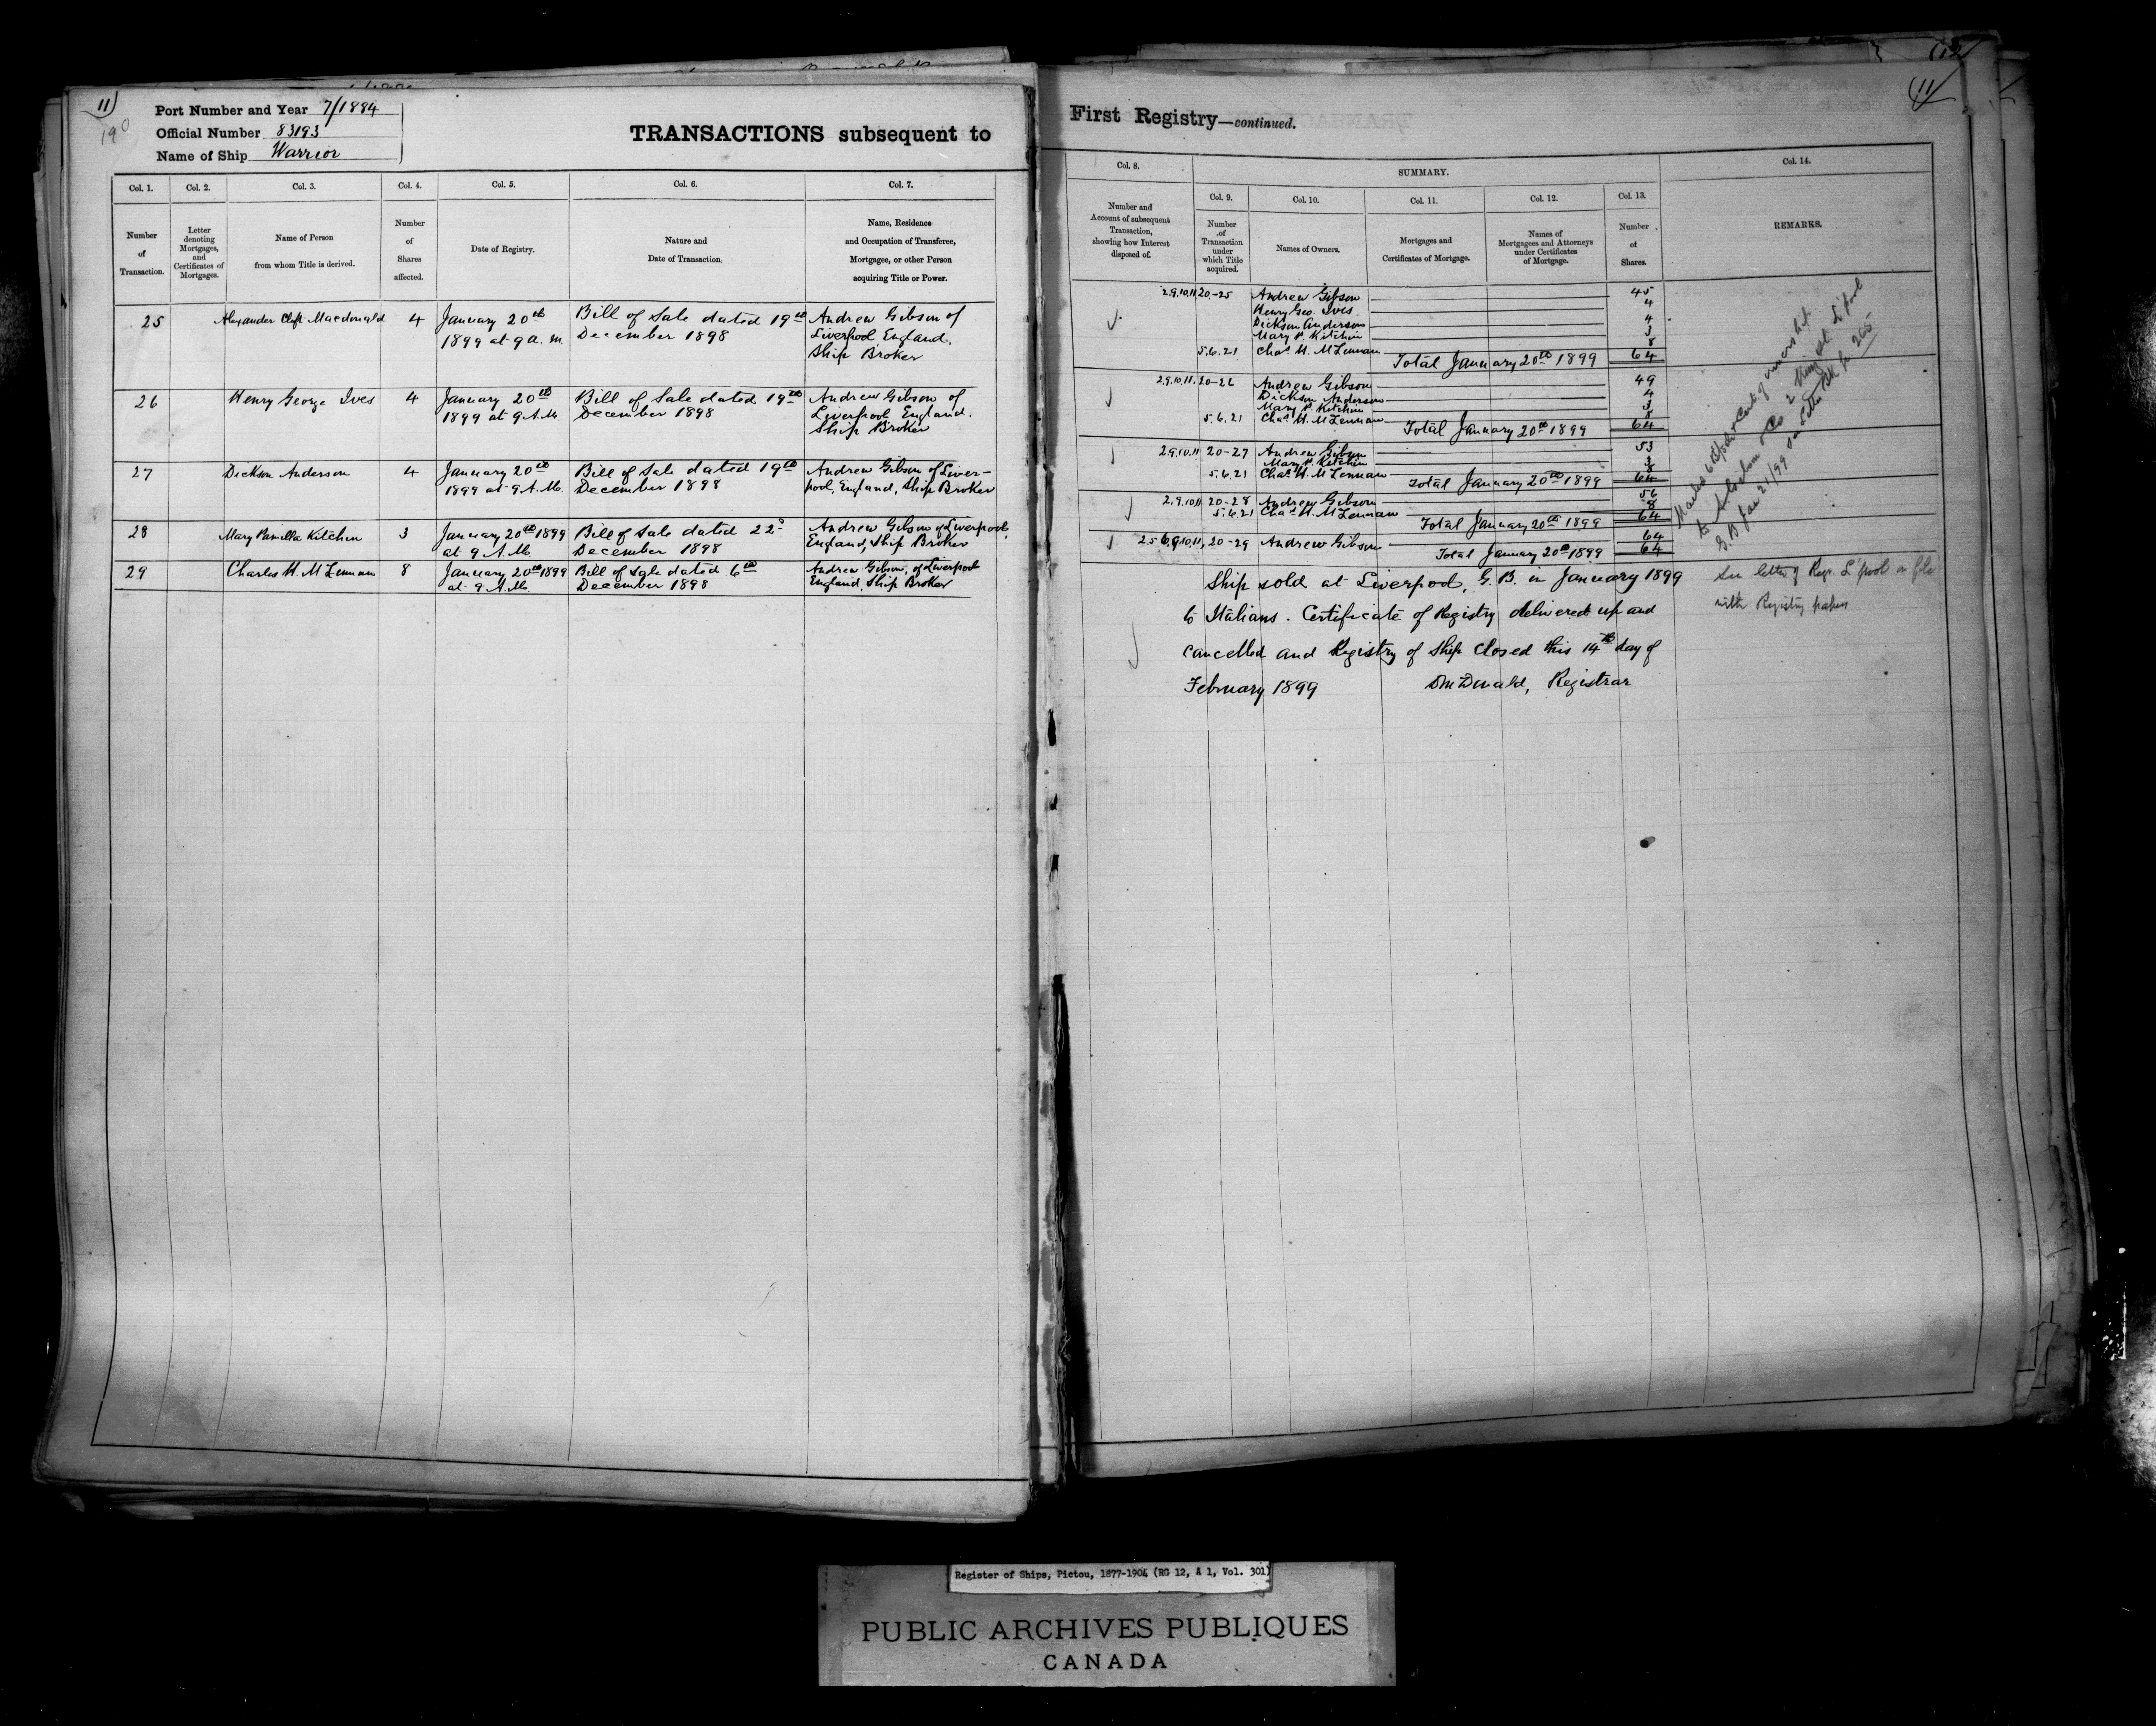 11)
190
Port Number and Year 7/1884
Official Number 83193
Name of Ship Warrior
TRANSACTIONS subsequent to
Col. 1.
Col. 2.
Col. 3.
Col. 4.
Col. 5.
Col. 6.
Col. 7.
Number
of
Transaction.
Letter
denoting
Mortgages,
and
Certificates of
Mortgages.
Name of Person
from whom Title is derived.
Number
of
Shares
affected.
Date of Registry.
Nature and
Date of Transaction.
Name, Residence
and Occupation of Transferee,
Mortgagee, or other Person
acquiring Title or Power.
25 Alexander Clift Macdonald 4
January 20th
1899 at 9 a. m.
Bill of Sale dated 19th
December 1898
Andrew Gibson of
Liverpool England,
Ship Broker
26 Henry George Ives 4
January 20th
1899 at 9 A.M.
Bill of Sale dated 19th
December 1898
Andrew Gibson of
Liverpool England.
Ship Broker
27 Dickson Anderson 4
January 20th
1899 at 9 A.M.
Bill of Sale dated 19th
December 1898
Andrew Gibson of Liver-
pool, England, Ship Broker
28 Mary Kitchin 3
January 20th 1899
at 9 A.M.
Bill of Sale dated 22d
December 1898
Andrew Gibson of Liverpool,
England, Ship Broker
29 Charles H. McLennan 8
January 20th 1899
at 9 A.M.
Bill of Sale dated 6th
December 1898
Andrew Gibson, of Liverpool
England Ship Broker
(12
(11
First Registry—continued.
Col. 8.
SUMMARY.
Col. 14.
Col. 9.
Col. 10.
Col. 11.
Col. 12.
Col. 13.
Number and
Account of subsequent
Transaction,
showing how Interest
disposed of.
Number
of
Transaction
under
which Title
acquired.
Names of Owners.
Mortgages and
Certificates of Mortgage.
Names of
Mortgagees and Attorneys
under Certificates
of Mortgage.
Number
of
Shares.
REMARKS.
2.9.10.11 20.-25 Andrew Gibson 45
Henry Geo. Ives 4
Dickson Anderson 4
Mary P. Kitchin 3
5.6.21 Chas H. McLennan 8
Total January 20th 1899 64
2.9.10.11. 20-26 Andrew Gibson 49
Dickson Anderson 4
Mary P. Kitchin 3
5.6.21 Chas H. McLennan 8
Total January 20th 1899 64
2.9.10.11 20-27 Andrew Gibson 53
Mary P. Kitchin 3
5.6.21 Chas H. McLennan 8
Total January 20th 1899 64
2.9.10.11 20-28 Andrew Gibson 56
5.6.21 Chas H. McLennan 8
Total January 20th 1899 64
2.5.6.9.10.11, 20-29 Andrew Gibson 64
Total January 20th 1899 64
Ship sold at Liverpool, G. B. in January 1899
to Italians. Certificate of Registry delivered up and
cancelled and Registry of Ship closed this 14th day of
February 1899 D McDonald, Registrar
See letter of Regr. L'pool on file
with Registry papers
Register of Ships, Pictou, 1877-1904 (RG 12, A 1, Vol. 301)
PUBLIC ARCHIVES PUBLIQUES
CANADA